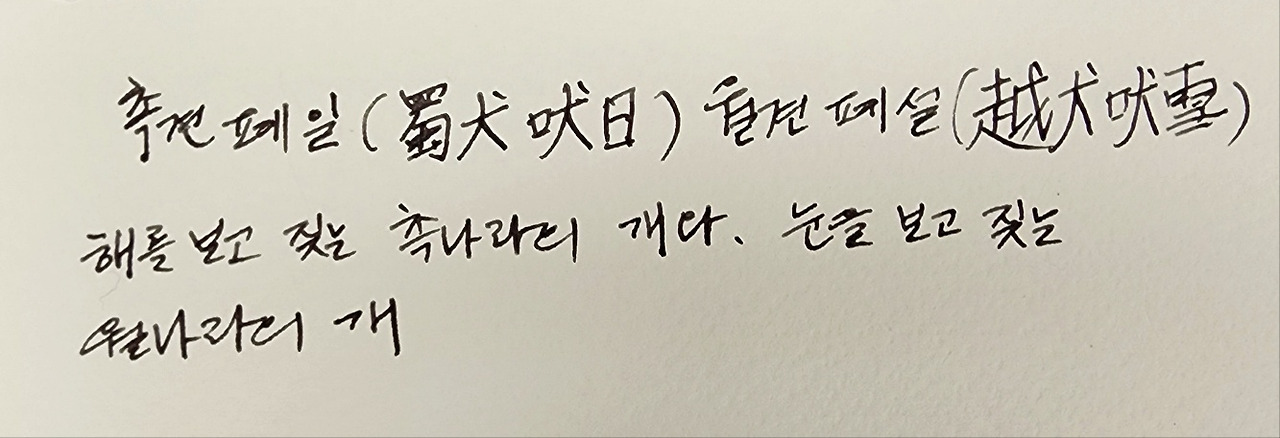 촉견폐일(蜀犬吠日) 월견폐설(越犬吠雪)
해를 보고 짖는 촉나라의 개다. 눈을 보고 짖는
월나라의 개